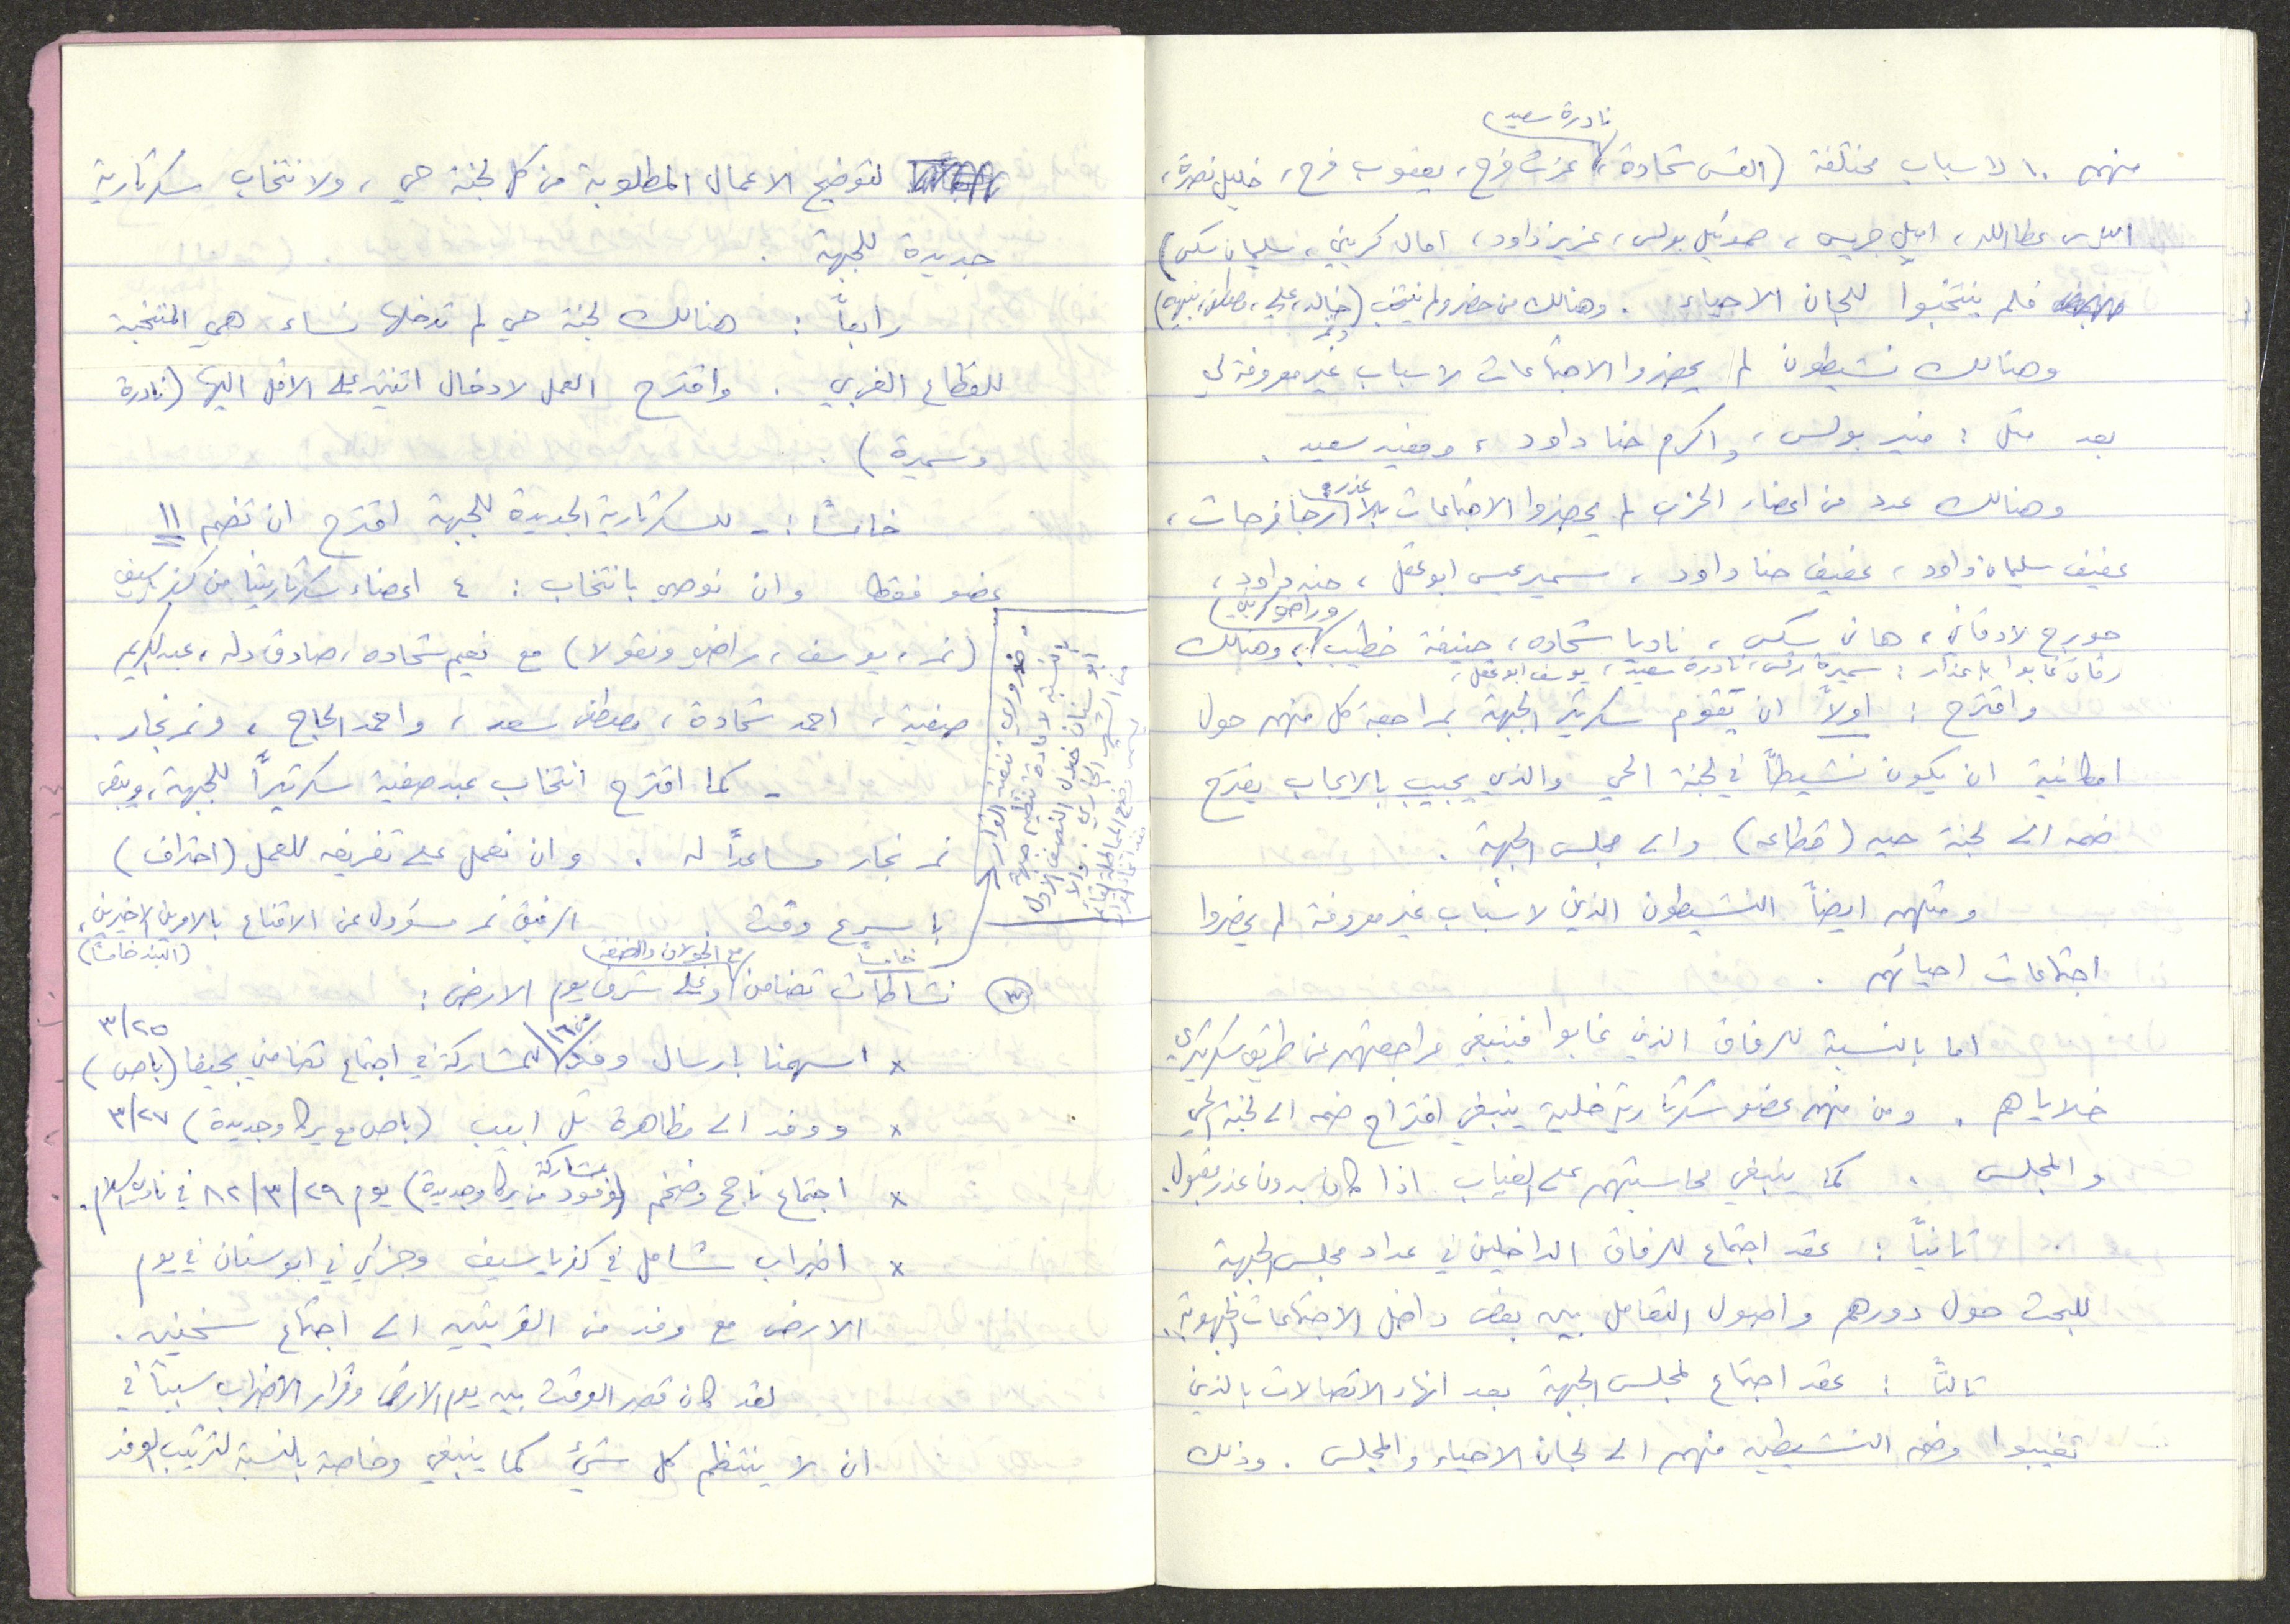 نادرة سعيد
منهم ١٠ لاسباب مختلفة (القس شحادة، عزت فرح، يعقوب فرح، خليل نصرة،
الياس عطاالله، اميل جريس، صموئيل بولس، عزيز داود، امال كريني، سليمان سكس)
فلم ينتخبوا للجان الاحياء. وهنالك من حضر ولم ينتخب (خالد، علي، مصطفى، نبيه)
ونمر
وهنالك نشيطون لم يحضروا الاجتماعات لاسباب غير معروفة لي
بعد مثل: منير بولس، واكرم حنا داود، ومفيد سعيد.
وهنالك عدد من اعضاء الحزب لم يحضروا الاجتماعات بلا عذر: رجا فرحات،
عفيف سليمان داود، عفيف حنا داود، سمير عيسى ابو عقل، حنه داود،
جورج لادقاني، هاني سكس، ناديا شحاده، حنيفة خطيب، وراضي كريني، وهنالك
رفاق غابوا باعذار: سميرة، نادرة سعيد، يوسف ابو عقل،
واقترح: اولاً ان يقوم سكرتير الجبهة بمراجعة كل منهم حول
امكانية ان يكون نشيطاً في لجنة الحي والذي يجيب بالايجاب يقترح
ضمه الى لجنة حيه (قطاعه) والى مجلس الجبهة.
ومنهم ايضاً النشيطون الذين لاسباب غير معروفة لم يحضروا
اجتماعات احيائهم.
اما بالنسبة للرفاق الذين غابوا فينبغي مراجعتهم عن طريق سكرتيري
خلاياهم. ومن منهم عضو سكرتارية خلية ينبغي اقتراح ضمه الى لجنة الحي
والمجلس. كما ينبغي محاسبتهم على الغياب اذا كان بدون عذر مقبول.
ثانياً: عقد اجتماع للرفاق الداخلين في عداد مجلس الجبهة
للبحث حول دورهم واصول التعامل بين بعض داخل الاجتماعات الجبهوية.
ثالثاً: عقد اجتماع لمجلس الجبهة بعد انهاء الاتصالات بالذين
تغيبوا وضم النشيطين منهم الى لجان الاحياء والمجلس. وذلك
لتوضيح الاعمال المطلوبة من كل لجنة حي، ولانتخاب سكرتارية
جديدة للجبهة.
رابعاً: هنالك لجنة حي لم تدخلها نساء، هي المنتخبة
للقطاع الغربي. واقترح العمل لادخال اثنتين على الاقل اليها (نادرة
وسميرة).
خامساً: - للسكرتارية الجديدة للجبهة اقترح ان تضم ١١
عضو فقط وان نوصي بانتخاب: ٤ اعضاء سكرتاريتنا من كفرياسيف
(نمر، يوسف، راضي ونقولا) مع نعيم شحاده، صادق دله، عبدالكريم
صفية، احمد شحادة، مصطفى سعد، واحمد الحاج، ونمر نجار.
- كما اقترح انتخاب عبد صفية سكرتيراً للجبهة، ويبقى
نمر نجار مساعداً له. وان نعمل على تفريغه للعمل (احتراف)
باسرع وقت الرفيق نمر مسؤول عن الاقناع بالامرين الاخيرين،
(البند خامساً)
ضروري تنفيذ القرار
بالنسبة لاعادة تنظيم جبهة
ابوسنان خلال النصف الاول
من الشهر الجاري، والا
٣ نشاطات تضامن مع الجولان والضفة وعلى شرف يوم الارض:
× اسهمنا بارسال وفد من ١٦ للمشاركة في اجتماع تضامني بحيفا (باص) ٣/٢٥
× ووفد الى مظاهرة تل ابيب (باص مع يركا وجديدة) ٣/٢٧
× اجتماع ناجح وضخم (بمشاركة وفود من يركا وجديدة) يوم ٨٢/٣/٢٩ في نادي السلام.
× اضراب شامل في كفرياسيف وجزئي في ابوسنان في يوم
الارض مع وفد من القريتين الى اجتماع سخنين.
لقد كان قصر الوقت بين يوم الارض وقرار الاضراب سبباً في
ان لا ينتظم كل شيء كما ينبغي وخاصة بالنسبة لترتيب الوفد